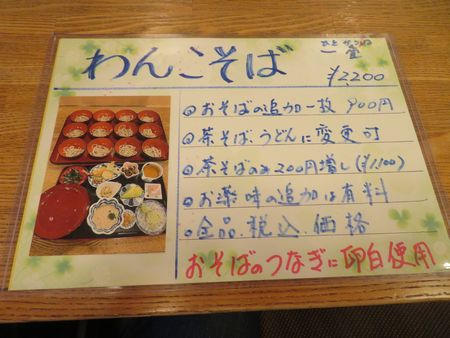 わんこそば
ひとせいろ
一堂
¥2200
◎おそばの追加一枚 900円
◎茶そば、うどんに変更可
◎茶そばのみ200円増し(¥1,100)
◎お薬味の追加は有料
◎全品、税込、価格
おそばのつなぎに卵白使用